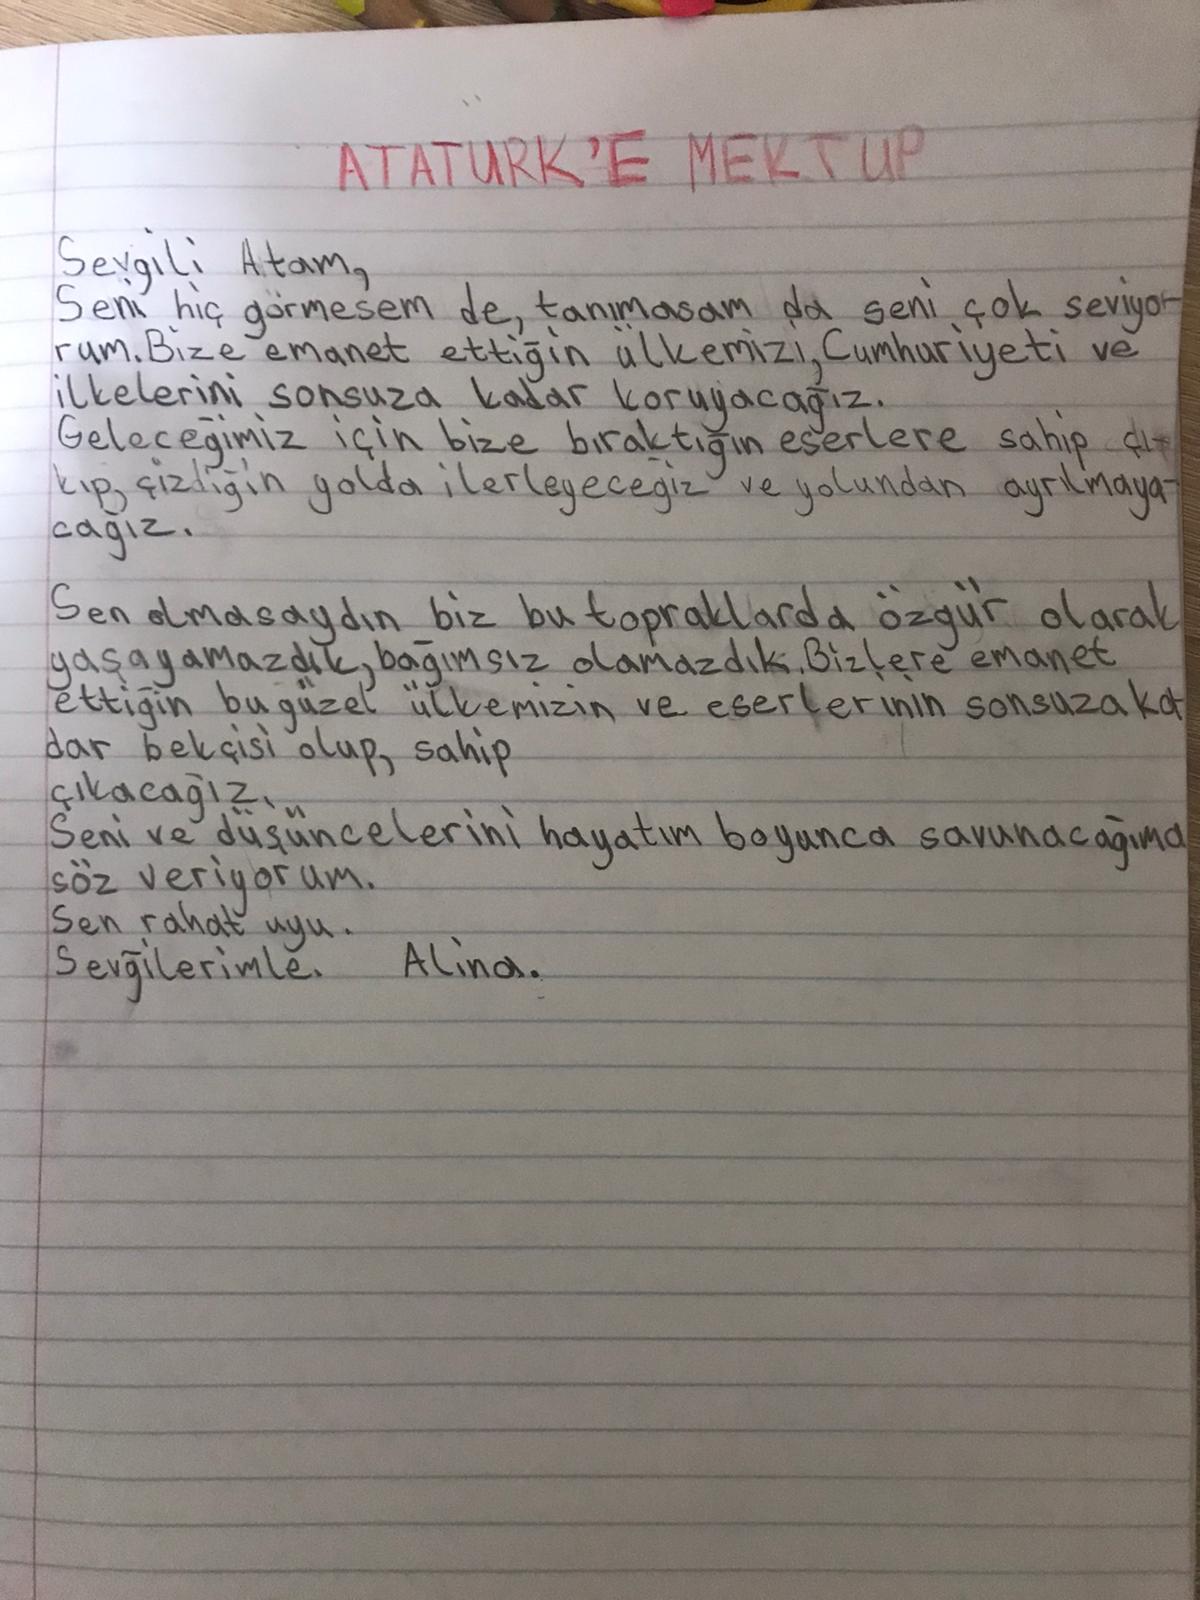 ATATÜRK'E MEKTUP
Sevgili Atam,
Seni hiç görmesem de, tanımasam da seni çok seviyo-
rum. Bize emanet ettiğin ülkemizi, Cumhuriyeti ve
ilkelerini sonsuza kadar koruyacağız.
Geleceğimiz için bize bıraktığın eserlere sahip çı-
kıp, çizdiğin yolda ilerleyeceğiz ve yolundan ayrılmaya-
cağız.
Sen olmasaydın biz bu topraklarda özgür olarak
yaşayamazdık, bağımsız olamazdık. Bizlere emanet
ettiğin bu güzel ülkemizin ve eserlerinin sonsuza ka
dar bekçisi olup, sahip
çıkacağız.
Seni ve düşüncelerini hayatım boyunca savunacağıma
söz veriyorum.
Sen rahat uyu.
Sevğilerimle. Alina.